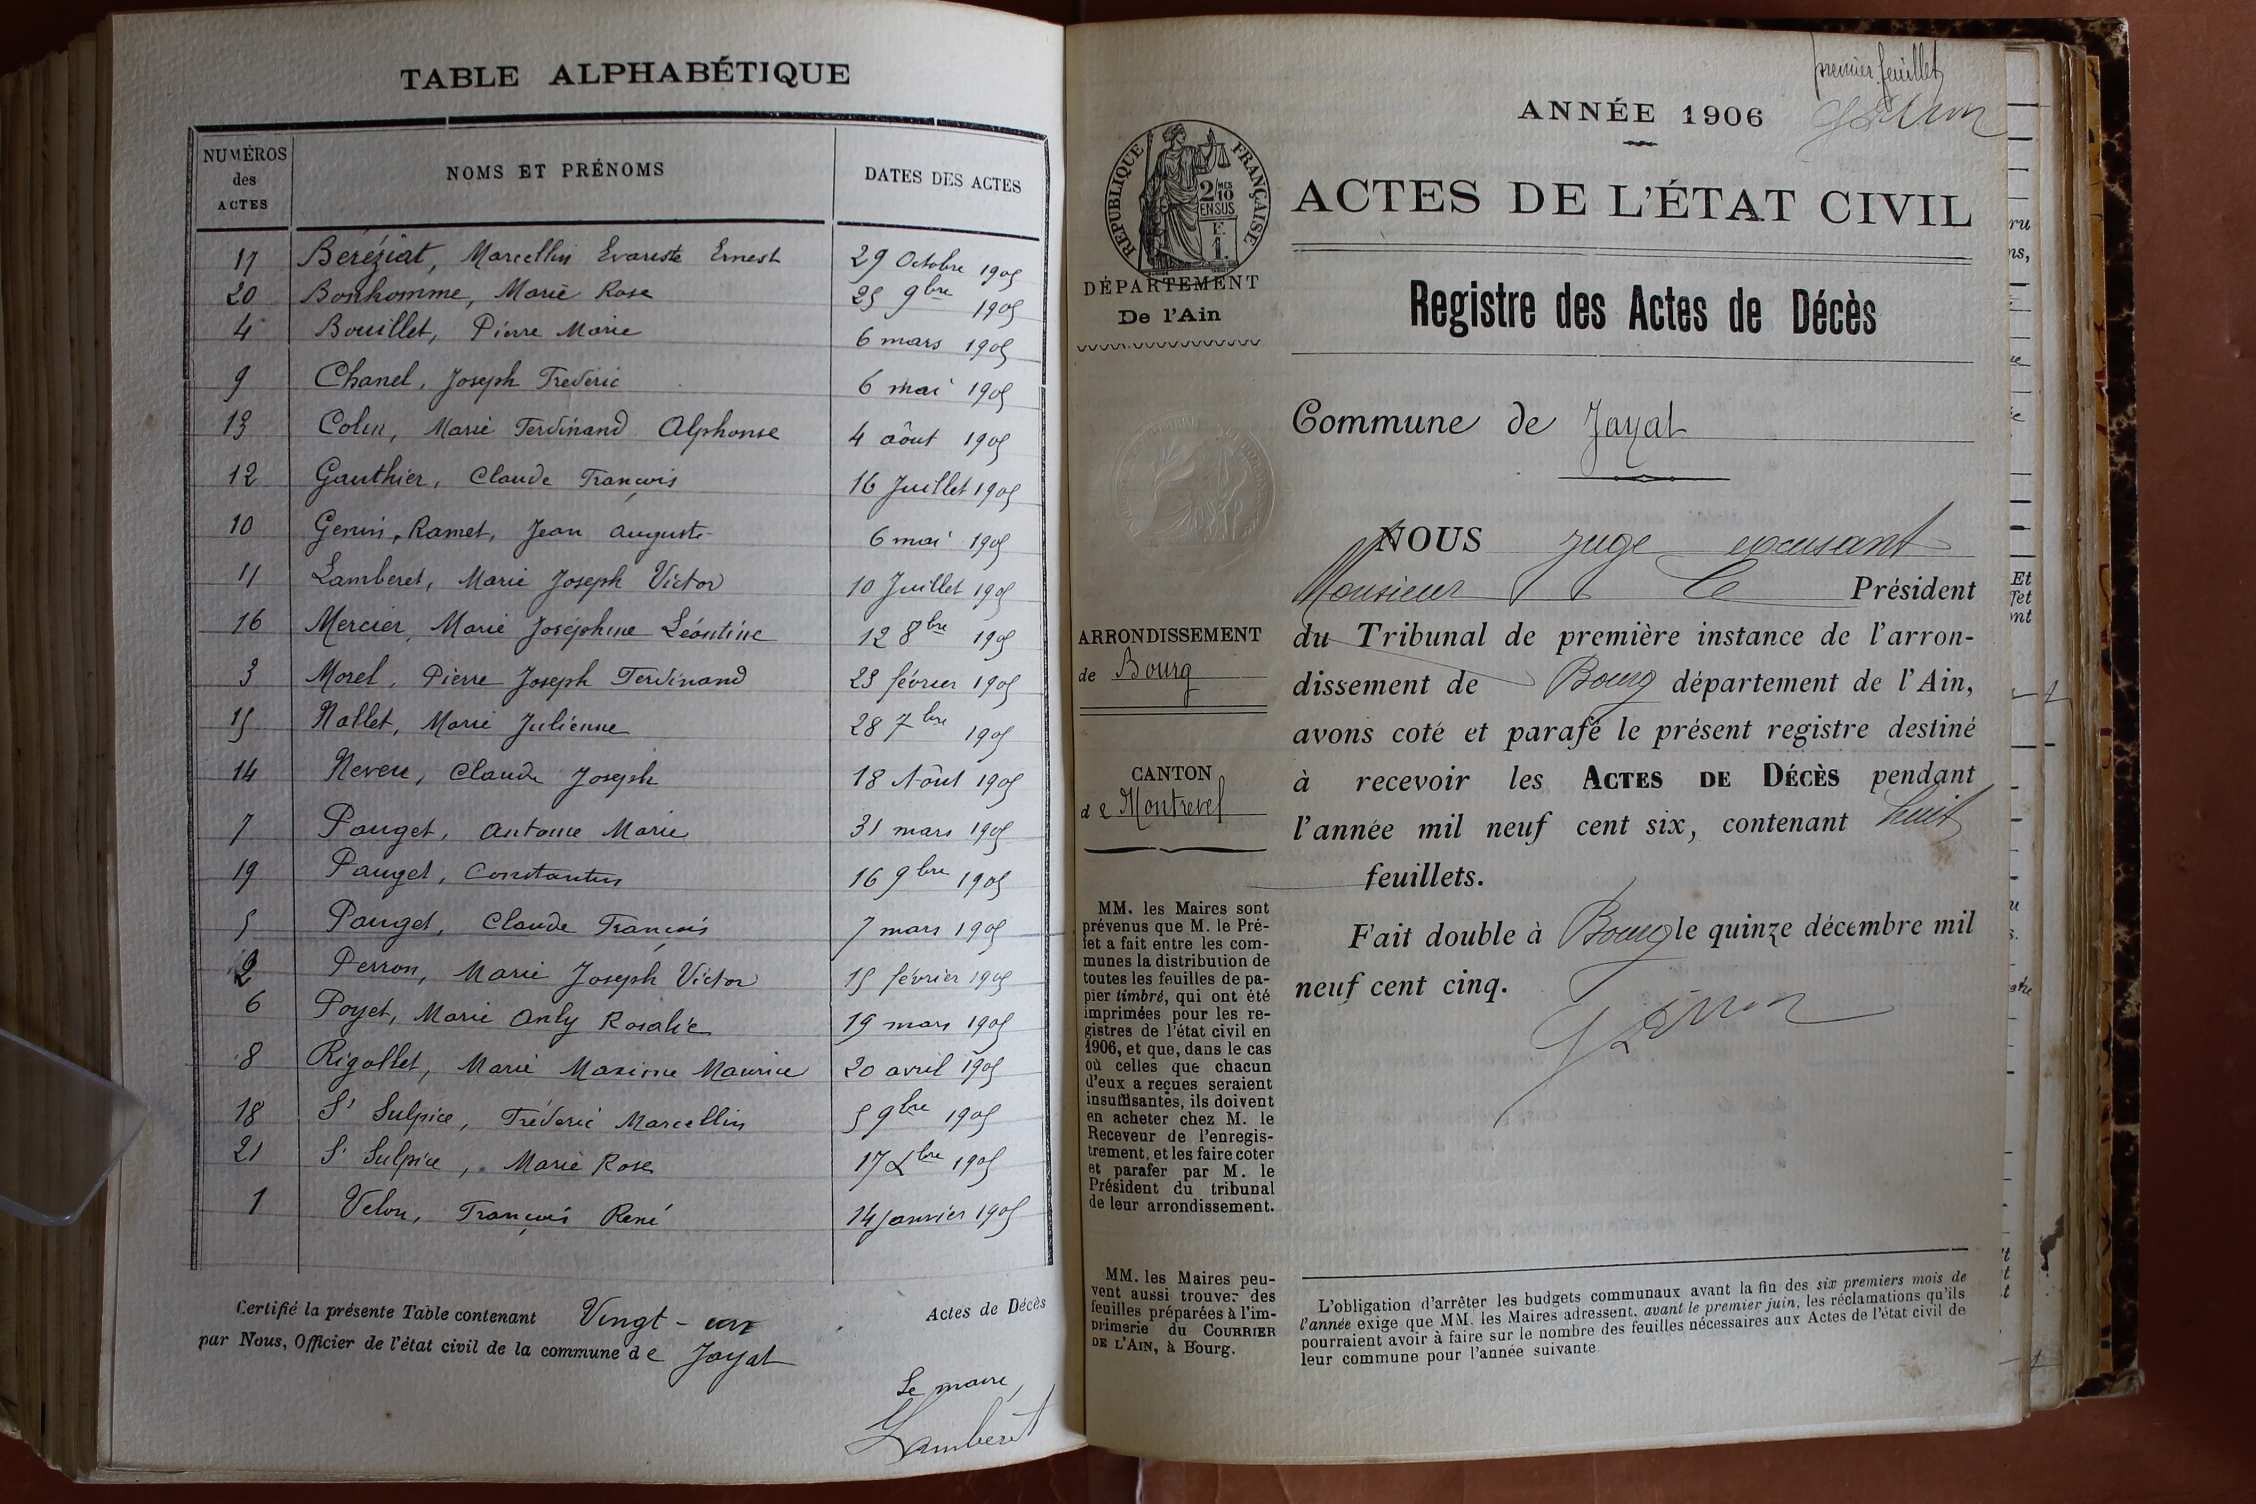 TABLE ALPHABÉTIQUE
NUMÉROS des ACTES NOMS ET PRÉNOMS DATES DES ACTES
17 Béréziat, Marcellin Evariste Ernest 29 Octobre 1905
20 Bonhomme, Marie Rose 25 9bre 1905
4 Bouillet, Pierre Marie 6 mars 1905
9 Chanel, Joseph Frédéric 6 mai 1905
13 Colin, Marie Ferdinand Alphonse 4 août 1905
12 Gauthier, Claude François 16 Juillet 1905
10 Genin, Ramet, Jean Auguste 6 mai 1905
11 Lamberet, Marie Joseph Victor 10 Juillet 1905
16 Mercier, Marie Joséphine Léontine 12 8bre 1905
3 Morel, Pierre Joseph Ferdinand 23 février 1905
15 Nallet, Marie Julienne 28 7bre 1905
14 Neveu, Claude Joseph 18 Août 1905
7 Pauget, Antoine Marie 31 mars 1905
19 Pauget, Constantin 16 9bre 1905
5 Pauget, Claude François 7 mars 1905
2 Perron, Marie Joseph Victor 15 février 1905
6 Poyet, Marie Anly Rosalie 19 mars 1905
8 Rigollet, Marie Maxime Maurice 20 avril 1905
18 St Sulpice, Fréderic Marcellin 5 9bre 1905
21 St Sulpice, Marie Rose 17 Xbre 1905
1 Velon, François René 14 janvier 1905
Certifié la présente Table contenant Vingt-un Actes de Décès
par Nous, Officier de l'état civil de la commune de Jayat
Le maire,
Lamberet
premier feuillet
ANNÉE 1906
RÉPUBLIQUE FRANÇAISE
2 MES 10
EN SUS
F.
1.
ACTES DE L'ÉTAT CIVIL
DÉPARTEMENT
De l'Ain
Registre des Actes de Décès
Commune de Jayat
NOUS juge excusant
Monsieur le Président
du Tribunal de première instance de l'arron-
dissement de Bourg département de l'Ain,
avons coté et parafé le présent registre destiné
à recevoir les ACTES DE DÉCÈS pendant
l'année mil neuf cent six, contenant huit
feuillets.
Fait double à Bourg le quinze décembre mil
neuf cent cinq.
ARRONDISSEMENT
de Bourg
CANTON
de Montrevel
MM. les Maires sont
prévenus que M. le Pré-
fet a fait entre les com-
munes la distribution de
toutes les feuilles de pa-
pier timbré, qui ont été
imprimées pour les re-
gistres de l'état civil en
1906, et que, dans le cas
où celles que chacun
d'eux a reçues seraient
insuffisantes, ils doivent
en acheter chez M. le
Receveur de l'enregis-
trement, et les faire coter
et parafer par M. le
Président du tribunal
de leur arrondissement.
MM. les Maires peu-
vent aussi trouver des
feuilles préparées à l'im-
primerie du COURRIER
DE L'AIN, à Bourg.
L'obligation d'arrêter les budgets communaux avant la fin des six premiers mois de
l'année exige que MM. les Maires adressent, avant le premier juin, les réclamations qu'ils
pourraient avoir à faire sur le nombre des feuilles nécessaires aux Actes de l'état civil de
leur commune pour l'année suivante